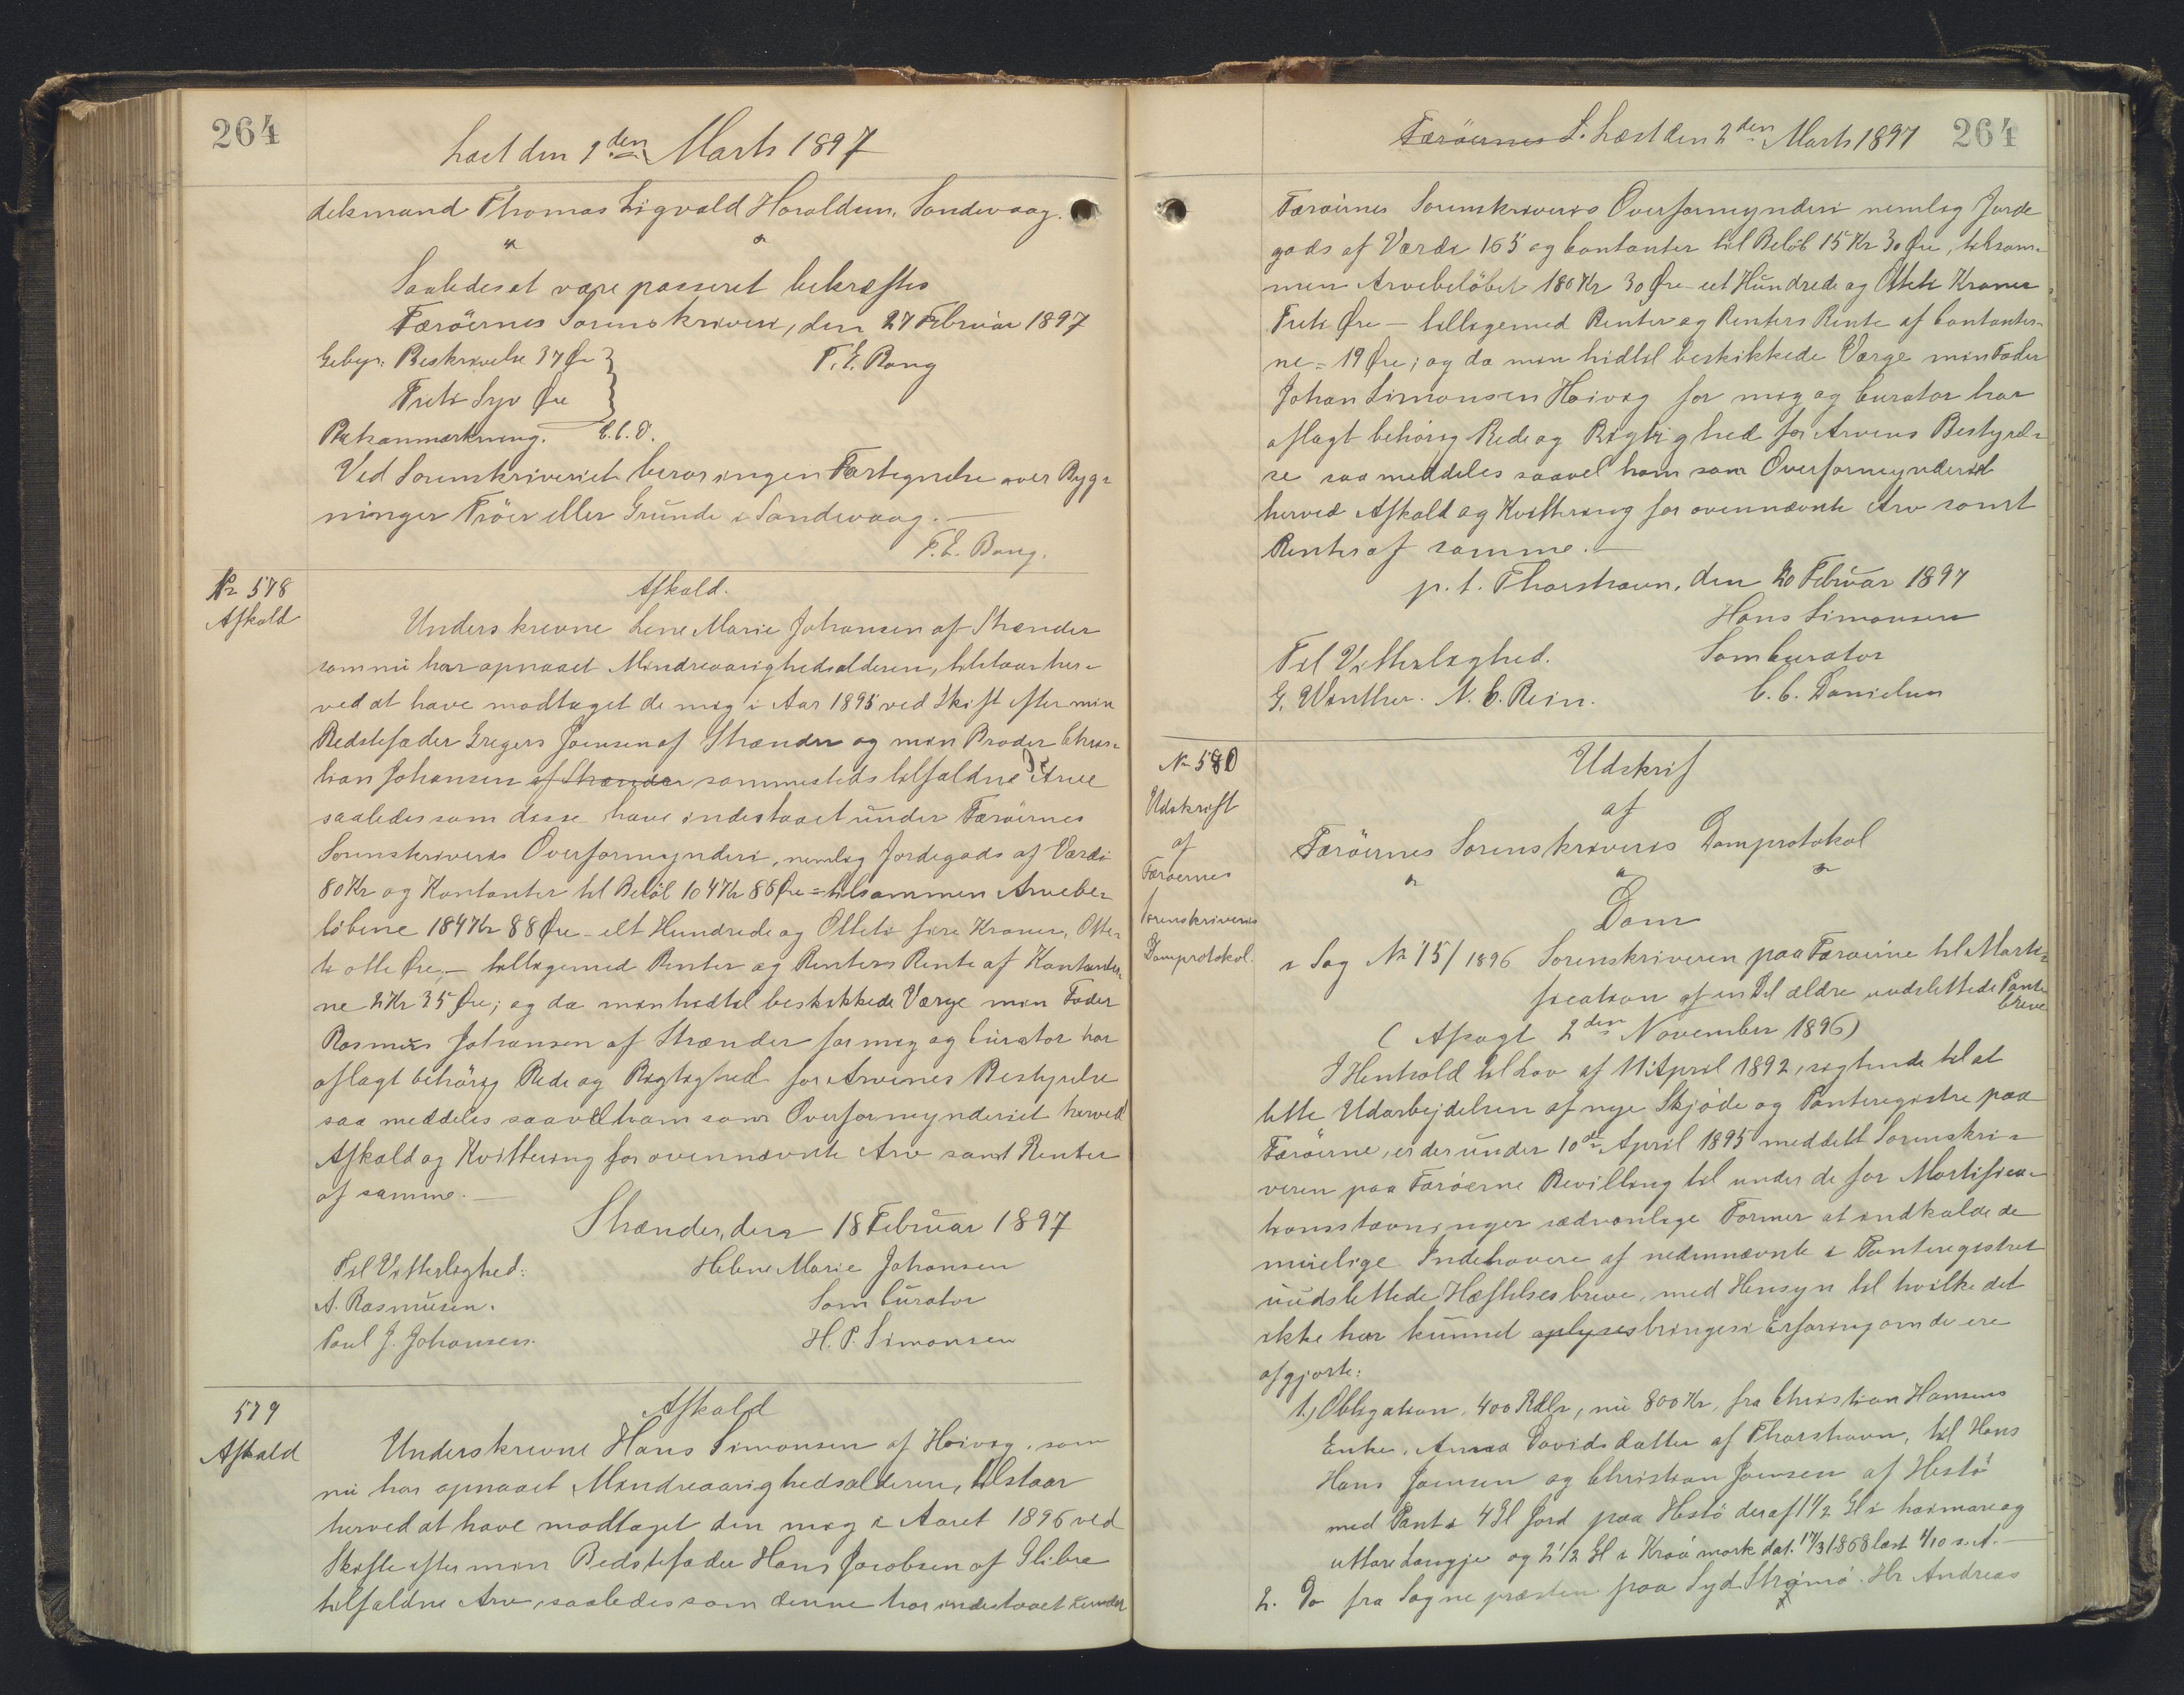 264
Læst den 1den Marts 1897
delsmand Thomas Sigvald Haraldsen, Sandevaag.
Saaledes at være passeret bekræftes
Færöernes Sorenskriveri, den 27 Februar 1897
Gebyr: Beskrivelse 37 Øre
F. E. Bang
Treti Syv Øre
Paategnanmærkning. E.C.D.
Ved Sorenskriveriet beror ingen Fortegnelse over Byg-
ninger Tröer eller Grunde i Sandevaag.
F. E. Bang.
Nr 578
Afkald
Afkald.
Underskrevne Lene Marie Johansen af Strænder
som nu har opnaaet Mindreaarighedsalderen, tilstaar her-
ved at have modtaget de mig i Aar 1895 ved Skift efter min
Bedstefader Gregers Joensen af Strænder og min Broder Chris-
tian Johansen af Strænder sammesteds tilfaldne Arve
saaledes som disse have indestaaet under Færöernes
Sorenskriveris Overformynderi, nemlig Jordegods af Værdi
80 Kr og Kontanter til Beløb 104 Kr 88 Øre = tilsammen Arvebe-
löbene 184 Kr 88 Øre - et Hundrede og Otteti fire Kroner, Otte-
ti otte Øre, - tilligemed Renter og Renters Rente af Kontanter-
ne 2 Kr 35 Øre; og da min hidtil beskikkede Værge min Fader
Rasmus Johansen af Strænder for mig og Curator har
aflagt behörig Rede og Rigtighed for Arvenes Bestyrelse
saa meddeles saavel ham som Overformynderiet herved
Afkald og Kvittering for ovennævnte Arv samt Renter
af samme.
Strænder, den 18 Februar 1897
Til Vitterlighed:
Helene Marie Johansen
A. Rasmusen.
Som Curator
Poul J. Johansen.
H. P. Simonsen
579
Afkald
Afkald
Underskrevne Hans Simonsen af Hoivig, som
nu har opnaaet Mindreaarighedsalderen, tilstaar
herved at have modtaget den mig i Aaret 1896 ved
Skifte efter min Bedstefader Hans Jacobsen af Glibre
tilfaldne Arv, saaledes som denne har indestaaet under
Færöernes S. Læst den 2den Marts 1897
264
Færöernes Sorenskriveris Overformynderi nemlig Jorde
gods af Værdi 165 og Contanter til Beløb 15 Kr 30 Øre, tilsam-
men Arvebelöbet 180 Kr 30 Øre - et Hundrede og Otteti Kroner
Treti Øre - tilligemed Renter og Renters Rente af Contanter-
ne = 19 Øre; og da min hidtil beskikkede Værge min Fader
Johan Simonsen Hoivig for mig og Curator har
aflagt behörig Rede og Rigtighed for Arvens Bestyrel-
se saa meddeles saavel ham som Overformynderiet
herved Afkald og Kvittering for ovennævnte Arv samt
Renter af samme.
p. t. Thorshavn, den 20 Februar 1897
Hans Simonsen
Til Vitterlighed.
Som Curator
G. Winther. N. C. Rein.
C. C. Danielsen
Nr 580
Udskrift
af
Færöernes
Sorenskriveris
Domprotokol.
Udskrif
af
Færöernes Sorenskriveris Domprotokol
Dom
i Sag Nr 15/1896 Sorenskriveren paa Færöerne til Morti-
fication af en Del ældre uudslettede Pante
breve
(Afsagt 2den November 1896)
I Henhold til Lov af 11 April 1892, sigtende til at
lette Udarbejdelsen af nye Skjöde og Panteregistre paa
Færöerne, er der under 10de April 1895 meddelt Sorenskri-
veren paa Færöerne Bevilling til under de for Mortifica-
tionsstævninger sædvanlige Former at indkalde de
muelige Indehavere af nedennævnte i Panteregistret
uudslettede Hæftelsesbreve, med Hensyn til hvilke det
ikke har kunnet oplyses bringes i Erfaring om de ere
afgjorte:
1., Obligation, 400 Rdlr, nu 800 Kr, fra Christian Hansens
Enke, Anna Davidsdatter af Thorshavn, til Hans
Hans Joensen og Christian Joensen af Hestö
med Pant i 4 Gl Jord paa Hestö deraf 1 1/2 Gl i haimare og
uttare Langgje og 2 1/2 Gl i Kraá mark dat. 17/3 1868 læst 4/10 s. A.
2. Do fra Sognepræsten paa Syd Strømö Hr Andreas